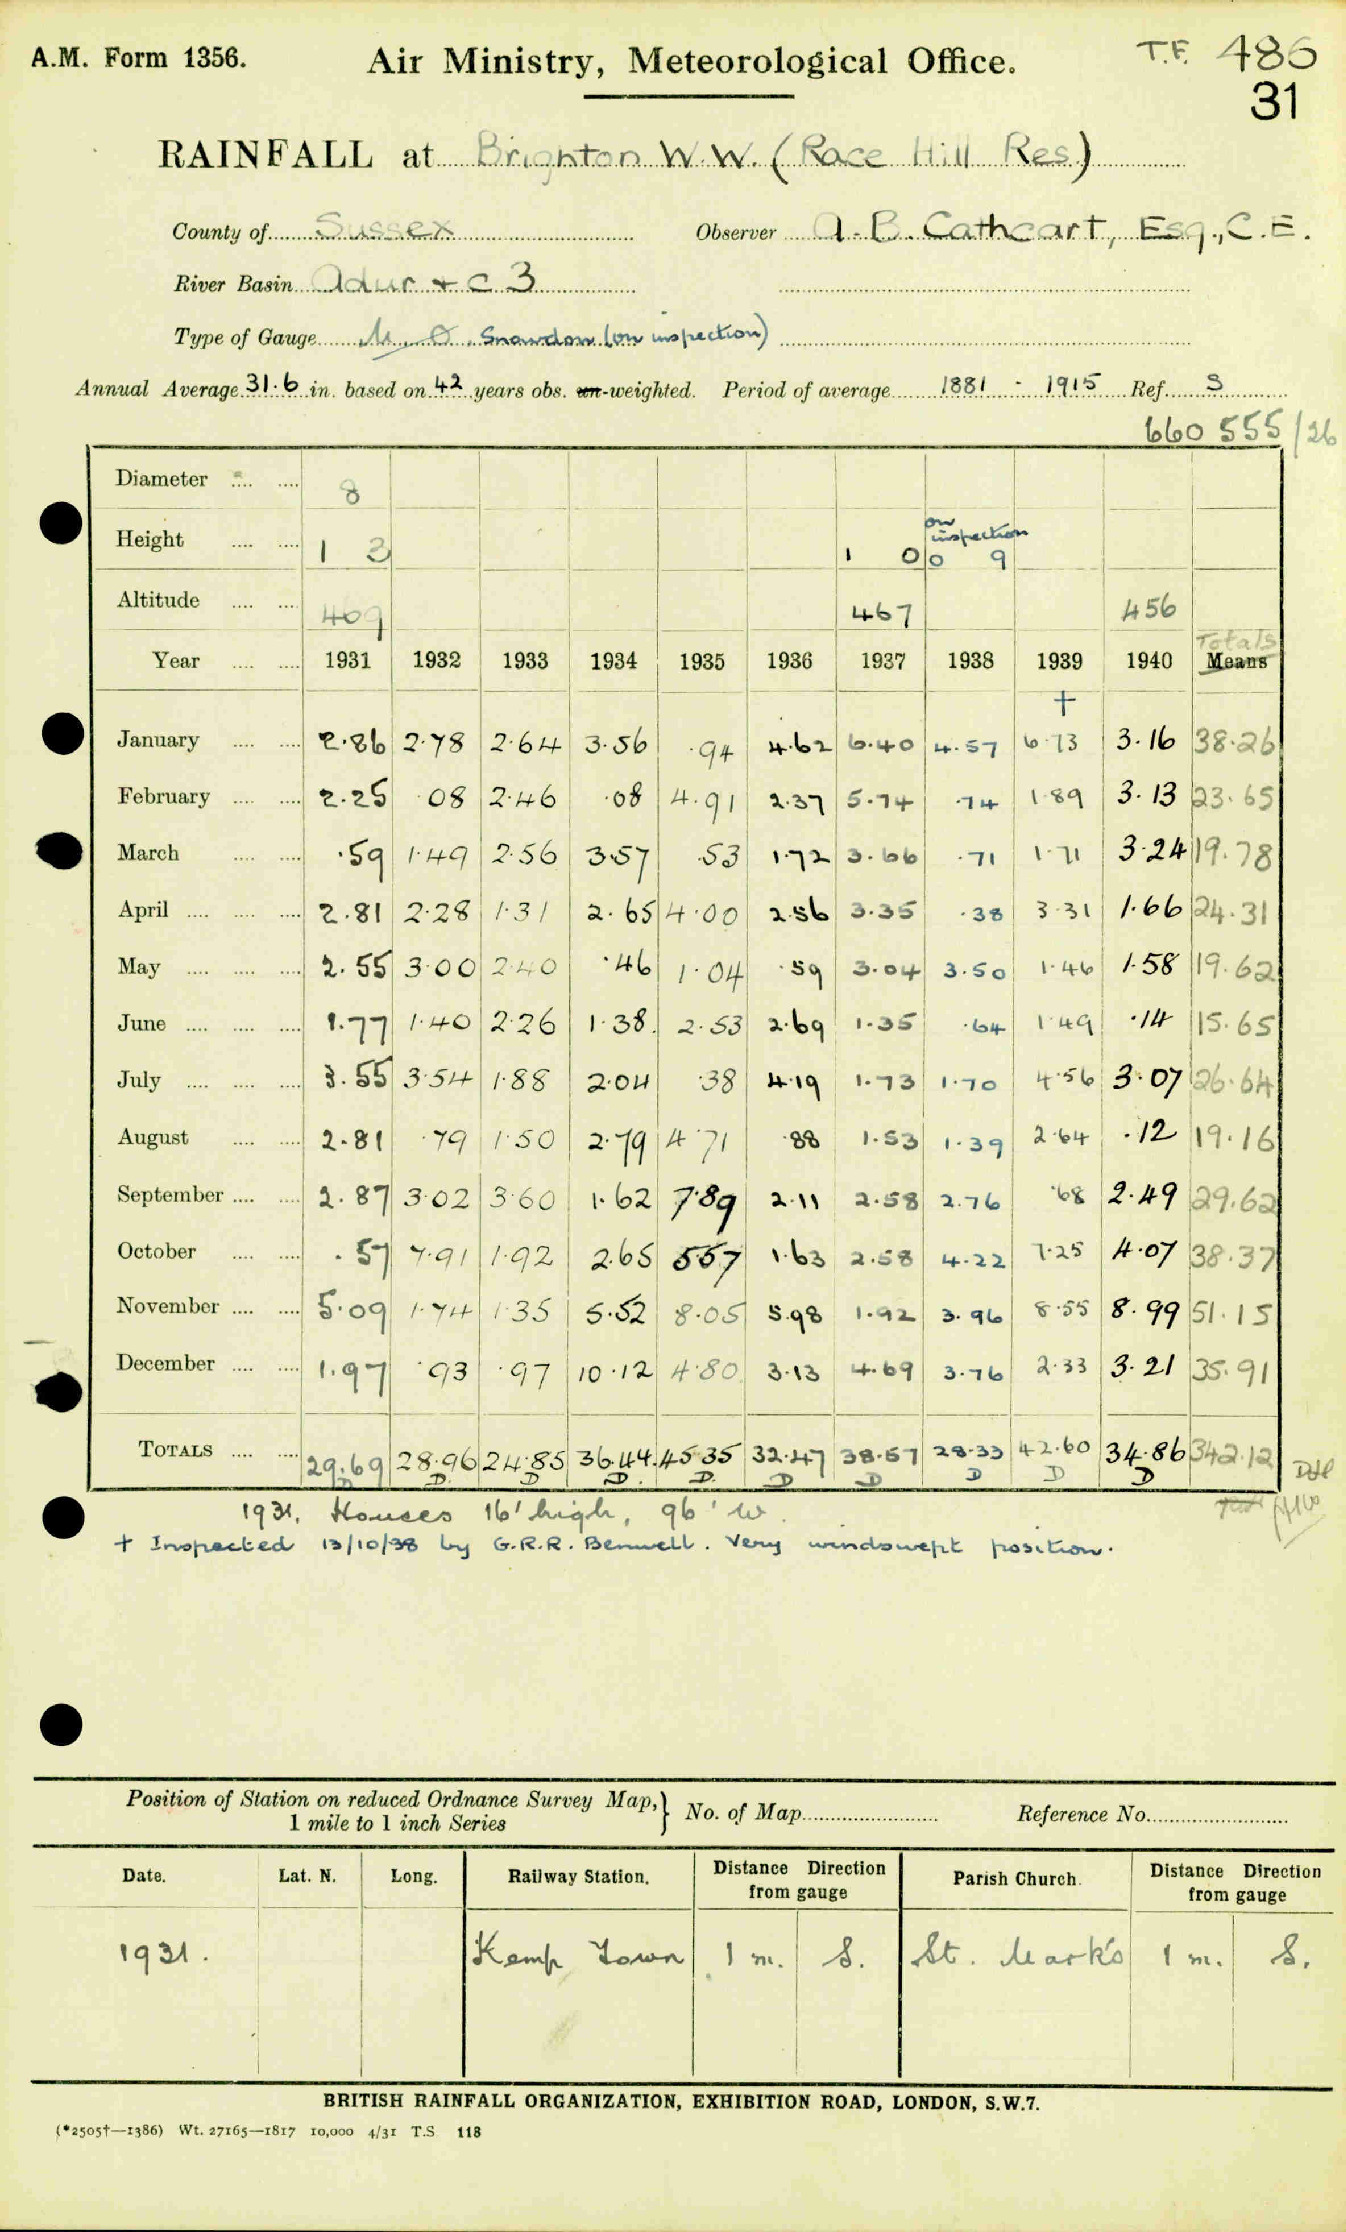 A.M. Form 1356. Air Ministry, Meteorological Office. T.F. 486
31
RAINFALL at Brighton W.W. (Race Hill Res)
County of Sussex Observer A. B. Cathcart, Esq., C.E.
River Basin Adur & C 3
Type of Gauge M. O. Snowdon (on inspection)
Annual Average 31.6 in. based on 42 years obs. un-weighted. Period of average 1881 - 1915 Ref. S
660 555/26
Diameter 8
Height 1 3 1 0 on inspection 0 9
Altitude 469 467 456
Totals
Year 1931 1932 1933 1934 1935 1936 1937 1938 1939 1940 Means
+
January 2.86 2.78 2.64 3.56 .94 4.62 6.40 4.57 6.73 3.16 38.26
February 2.25 .08 2.46 .08 4.91 2.37 5.74 .74 1.89 3.13 23.65
March .59 1.49 2.56 3.57 .53 1.72 3.66 .71 1.71 3.24 19.78
April 2.81 2.28 1.31 2.65 4.00 2.56 3.35 .38 3.31 1.66 24.31
May 2.55 3.00 2.40 .46 1.04 .59 3.04 3.50 1.46 1.58 19.62
June 1.77 1.40 2.26 1.38 2.53 2.69 1.35 .64 1.49 .14 15.65
July 3.55 3.54 1.88 2.04 .38 4.19 1.73 1.70 4.56 3.07 26.64
August 2.81 .79 1.50 2.79 4.71 .88 1.53 1.39 2.64 .12 19.16
September 2.87 3.02 3.60 1.62 7.89 2.11 2.58 2.76 .68 2.49 29.62
October .57 7.91 1.92 2.65 5.57 1.63 2.58 4.22 7.25 4.07 38.37
November 5.09 1.74 1.35 5.52 8.05 5.98 1.92 3.96 8.55 8.99 51.15
December 1.97 .93 .97 10.12 4.80 3.13 4.69 3.76 2.33 3.21 35.91
TOTALS 29.69 28.96 24.85 36.44 45.35 32.47 38.57 28.33 42.60 34.86 342.12
D D D D D D D D D D
1931. Houses 16' high, 96' W.
+ Inspected 13/10/38 by G.R.R. Benwell. Very windswept position.
Position of Station on reduced Ordnance Survey Map, 1 mile to 1 inch Series } No. of Map Reference No.
Date. Lat. N. Long. Railway Station. Distance Direction from gauge Parish Church. Distance Direction from gauge
1931. Kemp Town 1 m. S. St. Mark's 1 m. S.
BRITISH RAINFALL ORGANIZATION, EXHIBITION ROAD, LONDON, S.W.7.
(*2505†—1386) Wt. 27165—1817 10,000 4/31 T.S 118